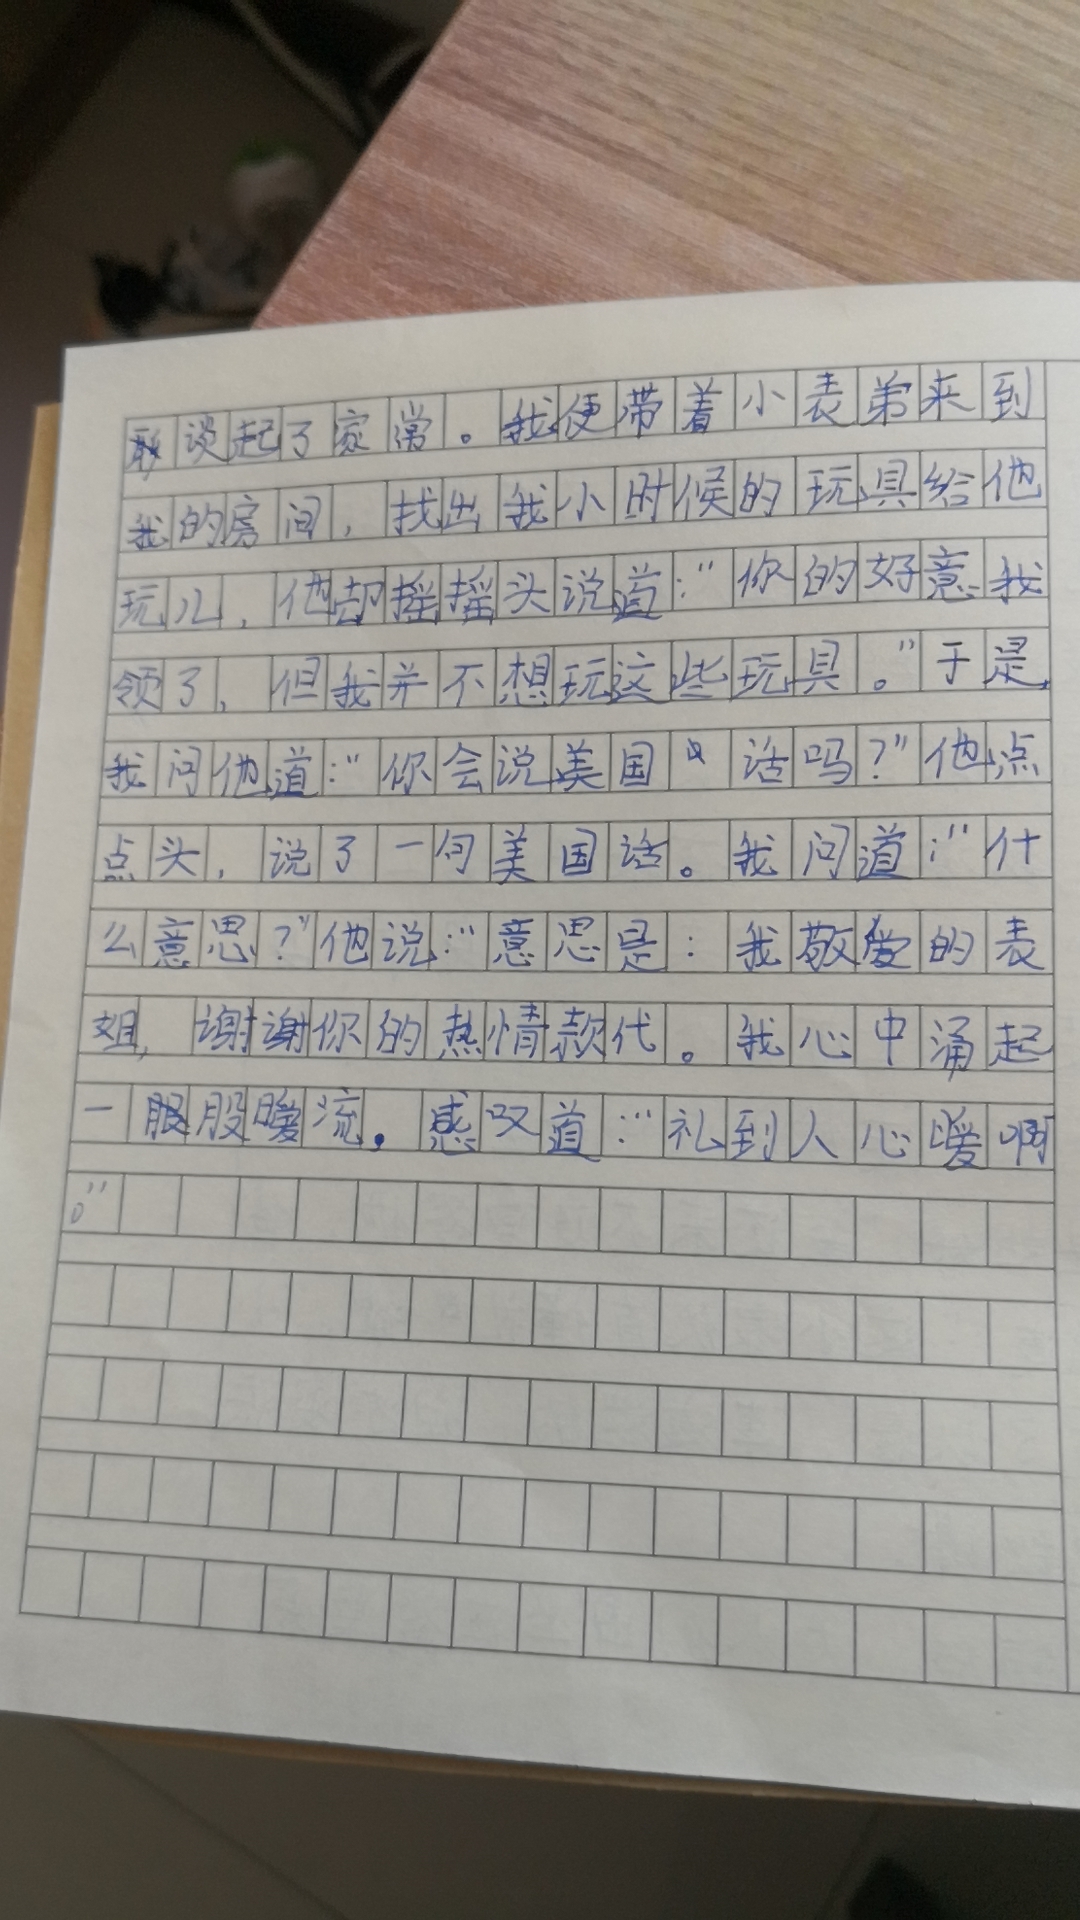 谈起了家常。我便带着小表弟来到
我的房间，找出我小时候的玩具给他
玩儿，他却摇摇头说道：“你的好意我
领了，但我并不想玩这些玩具。”于是，
我问他道：“你会说美国话吗？”他点
点头，说了一句美国话。我问道：“什
么意思？”他说：“意思是：我敬爱的表
姐，谢谢你的热情款代。我心中涌起
一股股暖流。感叹道：“礼到人心暖啊
。”